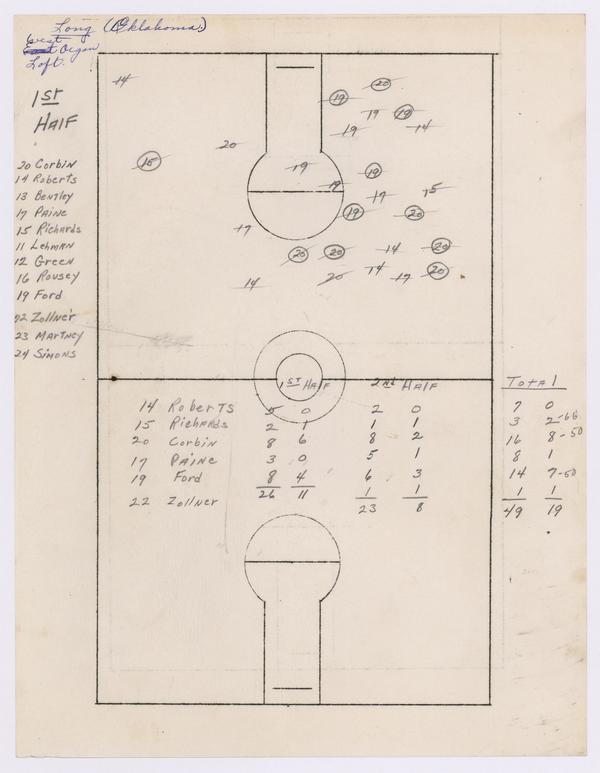 Long (Oklahoma)
West
East Organ
Loft.
1ST
HALF
20 Corbin
14 Roberts
13 Bentley
17 Paine
15 Richards
11 Lehman
12 Green
16 Rousey
19 Ford
22 Zollner
23 Martney
24 Simons
14
20
19
19
19
19
14
15
20
19
19
19
17
15
19
20
17
20
20
14
20
14
20
14
20
17
1ST HALF 2nd HALF Total
14 Roberts 5 0 2 0 7 0
15 Richards 2 1 1 1 3 2-66
20 Corbin 8 6 8 2 16 8-50
17 Paine 3 0 5 1 8 1
19 Ford 8 4 6 3 14 7-50
26 11
22 Zollner 1 1 1 1
23 8 49 19